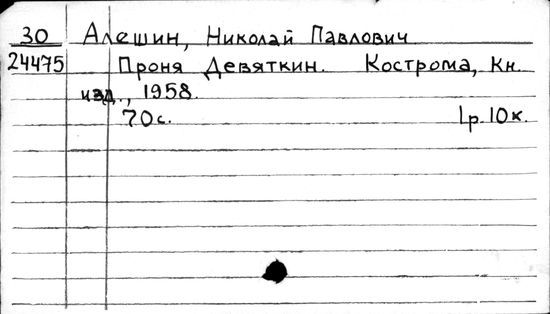 30 Алешин, Николай Павлович
24475 Проня Девяткин. Кострома, Кн.
изд., 1958.
70с. 1р.10к.